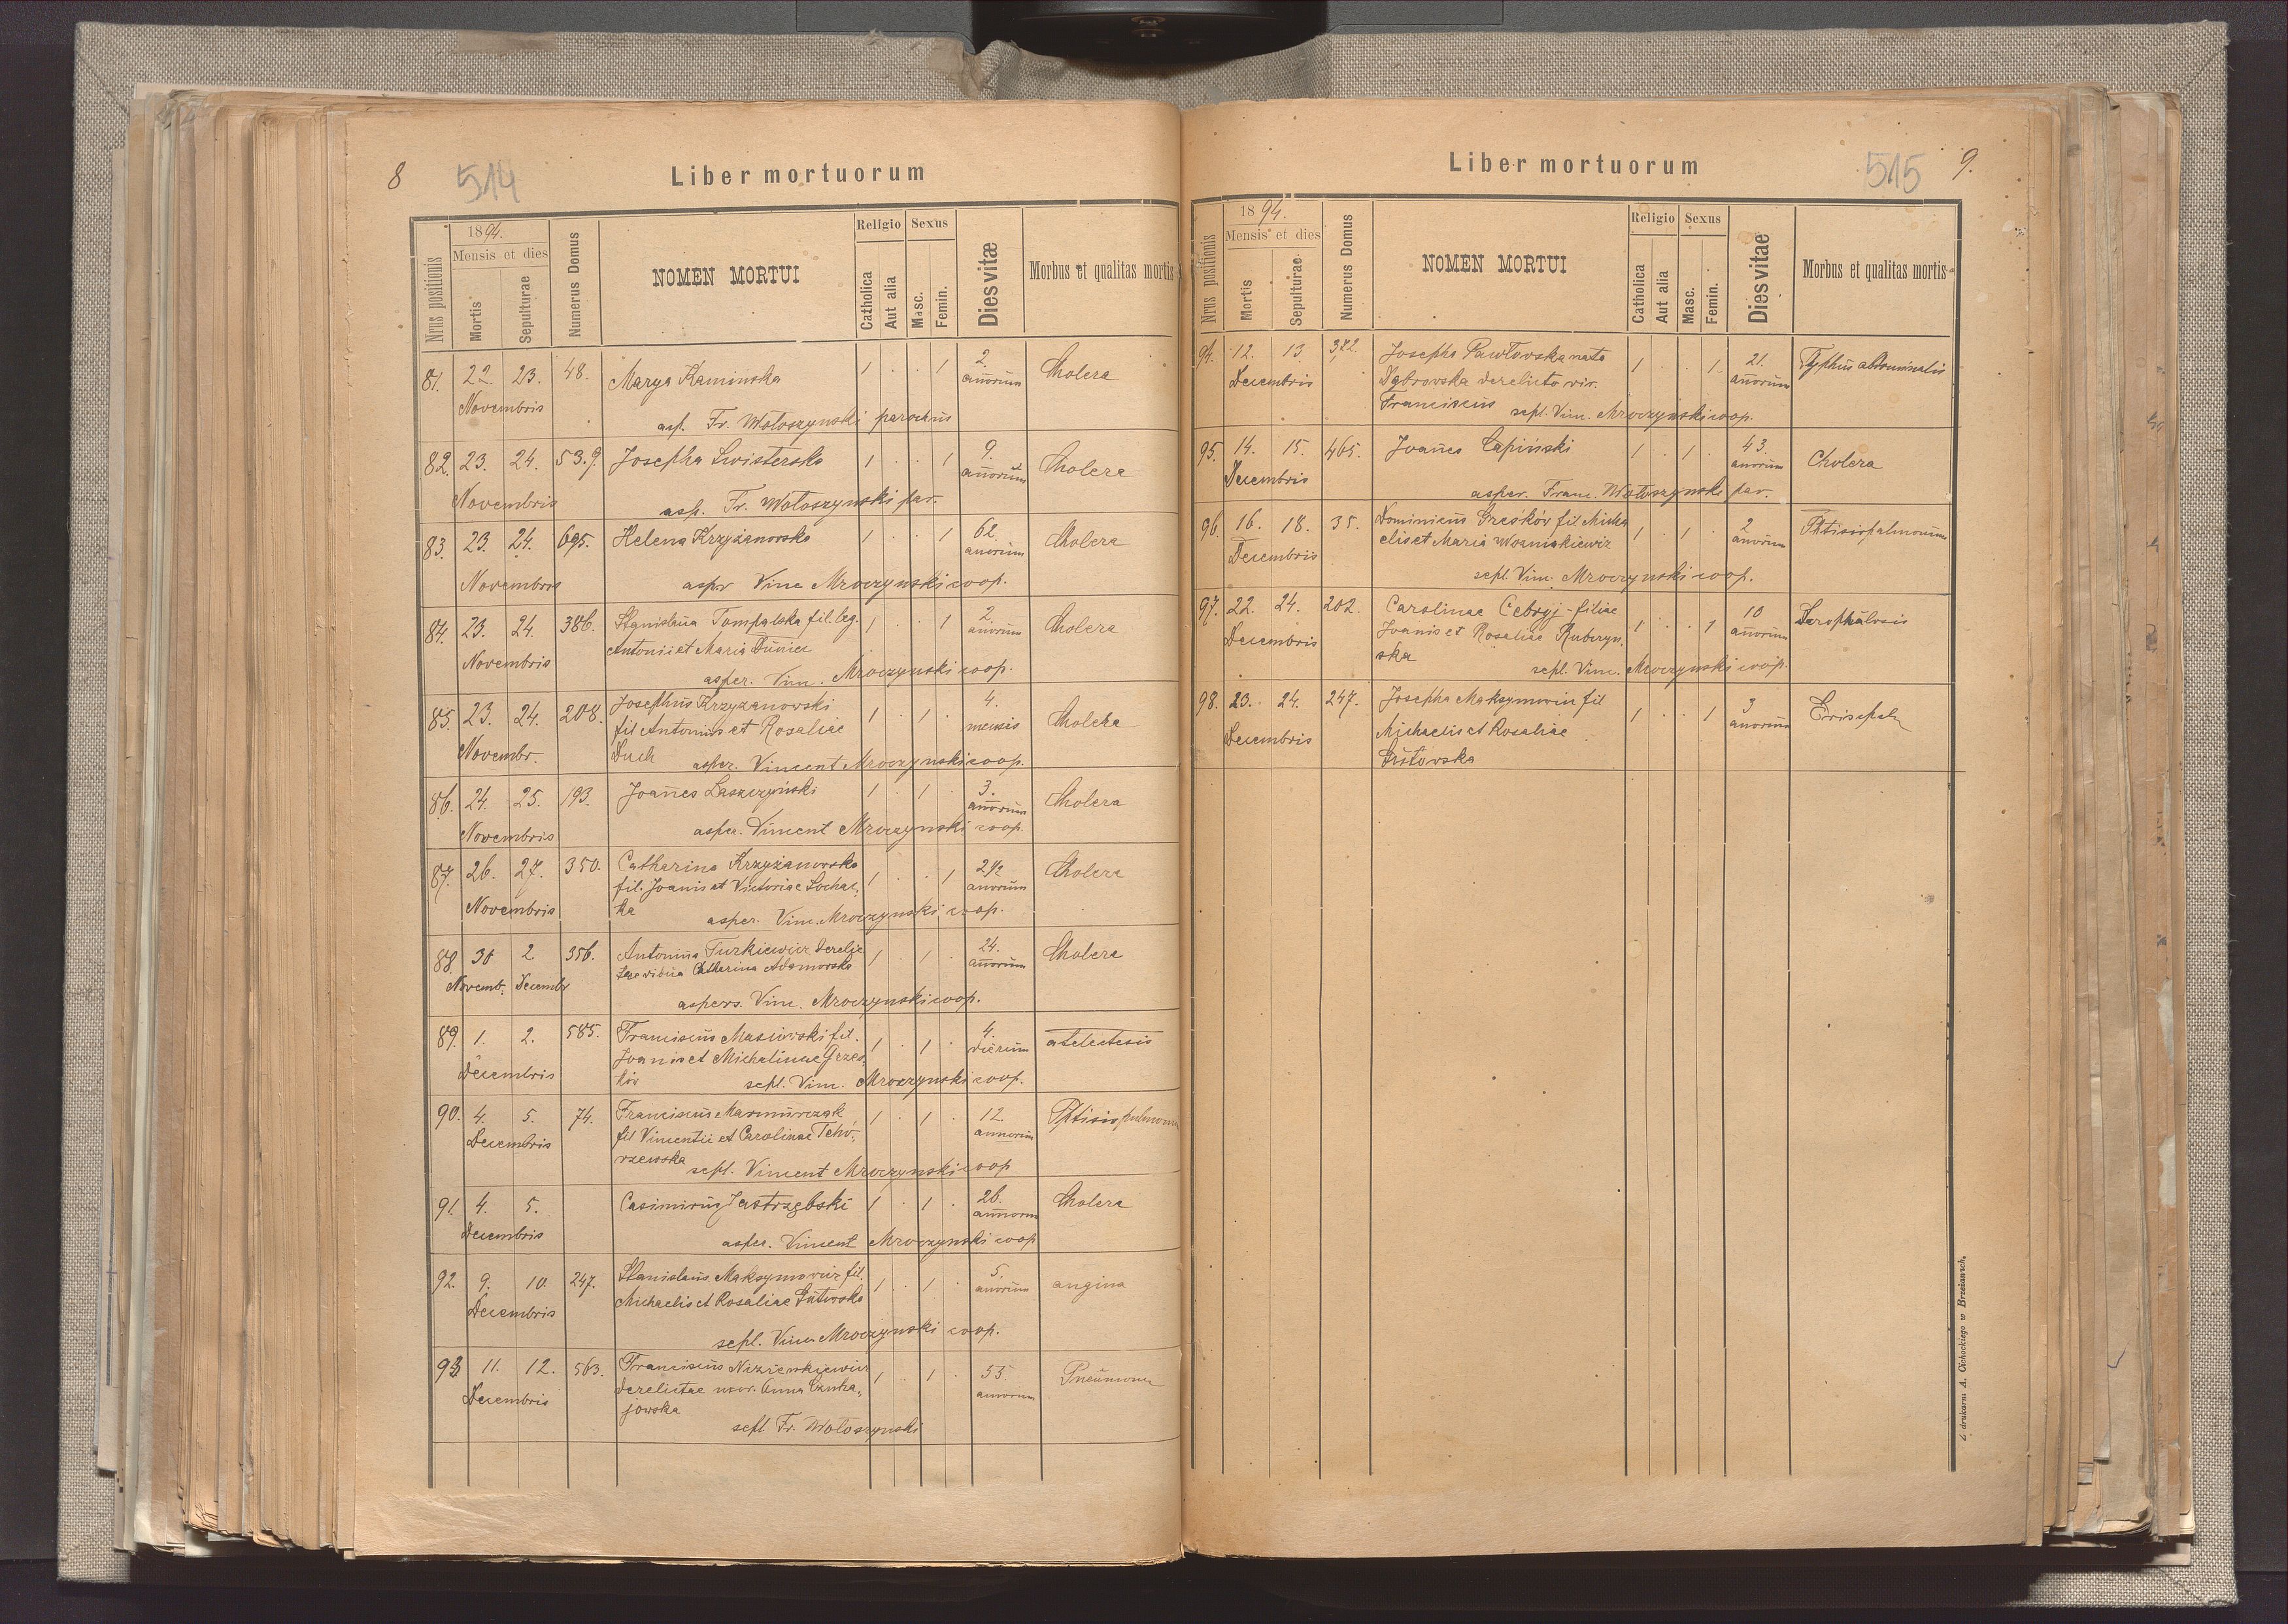 8
514
Liber mortuorum
Nrus positionis
1894.
Mensis et dies
Mortis
Sepulturae
Numerus Domus
NOMEN MORTUI
Religio
Catholica
Aut alia
Sexus
Masc.
Femin.
Dies vitæ
Morbus et qualitas mortis
81. 22. 23. 48. Marya Kaminska 1 . . 1 2. Cholera
Novembris annorum
asp. Fr. Wołoszynski parochus
82. 23. 24. 53.9. Josepha Swisterska 1 . . 1 9. Cholera
Novembris annorum
asp. Fr. Wołoszynski par.
83. 23. 24. 695. Helena Krzyżanowska 1 . . 1 62. Cholera
Novembris anorum
asper Vinc Mroczynski coop.
84. 23. 24. 386. Stanislaua Tompalska fil. leg. 1 . . 1 2. Cholera
Novembris Antonii et Maria anorum
asper. Vinc. Mroczynski coop.
85. 23. 24. 208. Josephus Krzyzanowski 1 . 1 . 4. Cholera
fil Antonius et Rosaliae mensis
Novembr. Duch asper. Vincent Mroczynski coop.
86. 24. 25. 193. Joanes Laszczyński 1 . 1 . 3. Cholera
Novembris annorum
asper. Vincent Mroczynski coop.
87. 26. 27. 350. Catharina Krzyżanowska 1 . . 1 2 1/2 Cholera
fil. Joanis et Victoriae Sochac, anorum
Novembris ka asper. Vinc. Mroczynski coop.
88. 30 2 356. Antonius Turkiewicz 1 . 1 . 24. Cholera
Novemb. Decembr Catharina Adamowska annorum
aspers. Vinc. Mroczynski coop.
89. 1. 2. 585. Franciscus Masiowski fil. 1 . 1 . 4. atelectesis
Decembris Joanis et Michalinae Grzes, dierum
ków sepl. Vinc. Mroczynski coop.
90. 4. 5. 74. Franciscus Marmurczak 1 . 1 . 12. Phtisis pulmonum
Decembris fil Vincentii et Carolinae Tchó, annorum
rzewska sepl. Vincent Mroczynski coop
91. 4. 5. Casimirus Jastrzębski 1 . 1 . 26. Cholera
Decembris annorum
asper. Vincent Mroczynski coop
92. 9. 10 247. Stanislaus Maksymowicz fil. 1 . 1 . 5. angina
Decembris Michaelis et Rosaliae Gutowska anorum
sepl. Vinc. Mroczynski coop.
93. 11. 12. 563. Franciscus 1 . 1 . 53. Pneumonia
Decembris derelictae uxor. Anna annorum
jowska
sepl. Fr. Wołoszynski
Liber mortuorum
515
9.
Nrus positionis
1894.
Mensis et dies
Mortis
Sepulturae
Numerus Domus
NOMEN MORTUI
Religio
Catholica
Aut alia
Sexus
Masc.
Femin.
Dies vitae
Morbus et qualitas mortis
94. 12. 13. 322. Josepha Pawłowska nata 1 . . 1 21. Typhus abdominalis
Decembris Dąbrowska derelicto vir. annorum
Franciscus sepl. Vinc. Mroczynski coop.
95. 14. 15. 465. Joanes Łapiński 1 . 1 . 43. Cholera
Decembris anorum
asper. Franc. Wołoszynski par.
96. 16. 18. 35. Dominicus Grześków fil Micha 1 . 1 . 2 Phtisis pulmonum
Decembris elis et Maria Wozniakiewicz anorum
sepl. Vinc. Mroczynski coop.
97. 22. 24. 202. Carolinae Cebryj - filiae 1 . . 1 10 Scrophulosis
Decembris Joanis et Rosaliae Rubczyn, annorum
ska sepl. Vinc. Mroczynski coop.
98. 23. 24. 247. Josepha Maksymowicz fil 1 . . 1 3
Decembris Michaelis et Rosaliae anorum
Gutowska
Z drukarni A. Cichockiego w Brzeżanach.